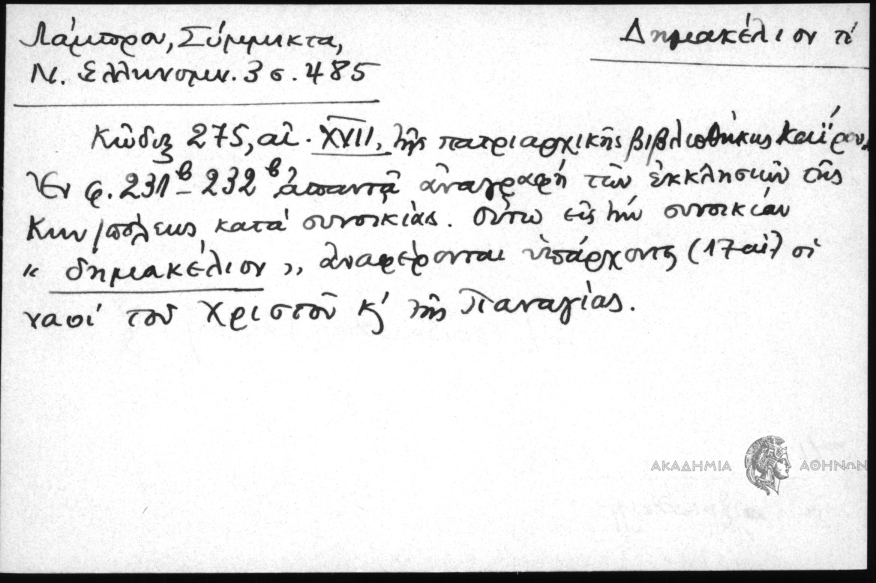 Λάμπρου, Σύμμικτα,
Ν. Ελληνομν. 3 σ. 485
Δημακέλιον τί
Κῶδιξ 275, αἰ. XVII, τῆς πατριαρχικῆς βιβλιοθήκης Καΐρου.
Ἐν φ. 231β – 232β ἀπαντᾷ ἀναγραφή τῶν ἐκκλησιῶν τῆς
Κων/πόλεως κατά συνοικίας. Οὕτω εἰς τήν συνοικίαν
" δημακέλιον ", ἀναφέρονται ὑπάρχοντες (17 αἰ) οἱ
ναοί τοῦ Χριστοῦ κ' τῆς Παναγίας.
ΑΚΑΔΗΜΙΑ ΑΘΗΝΩΝ